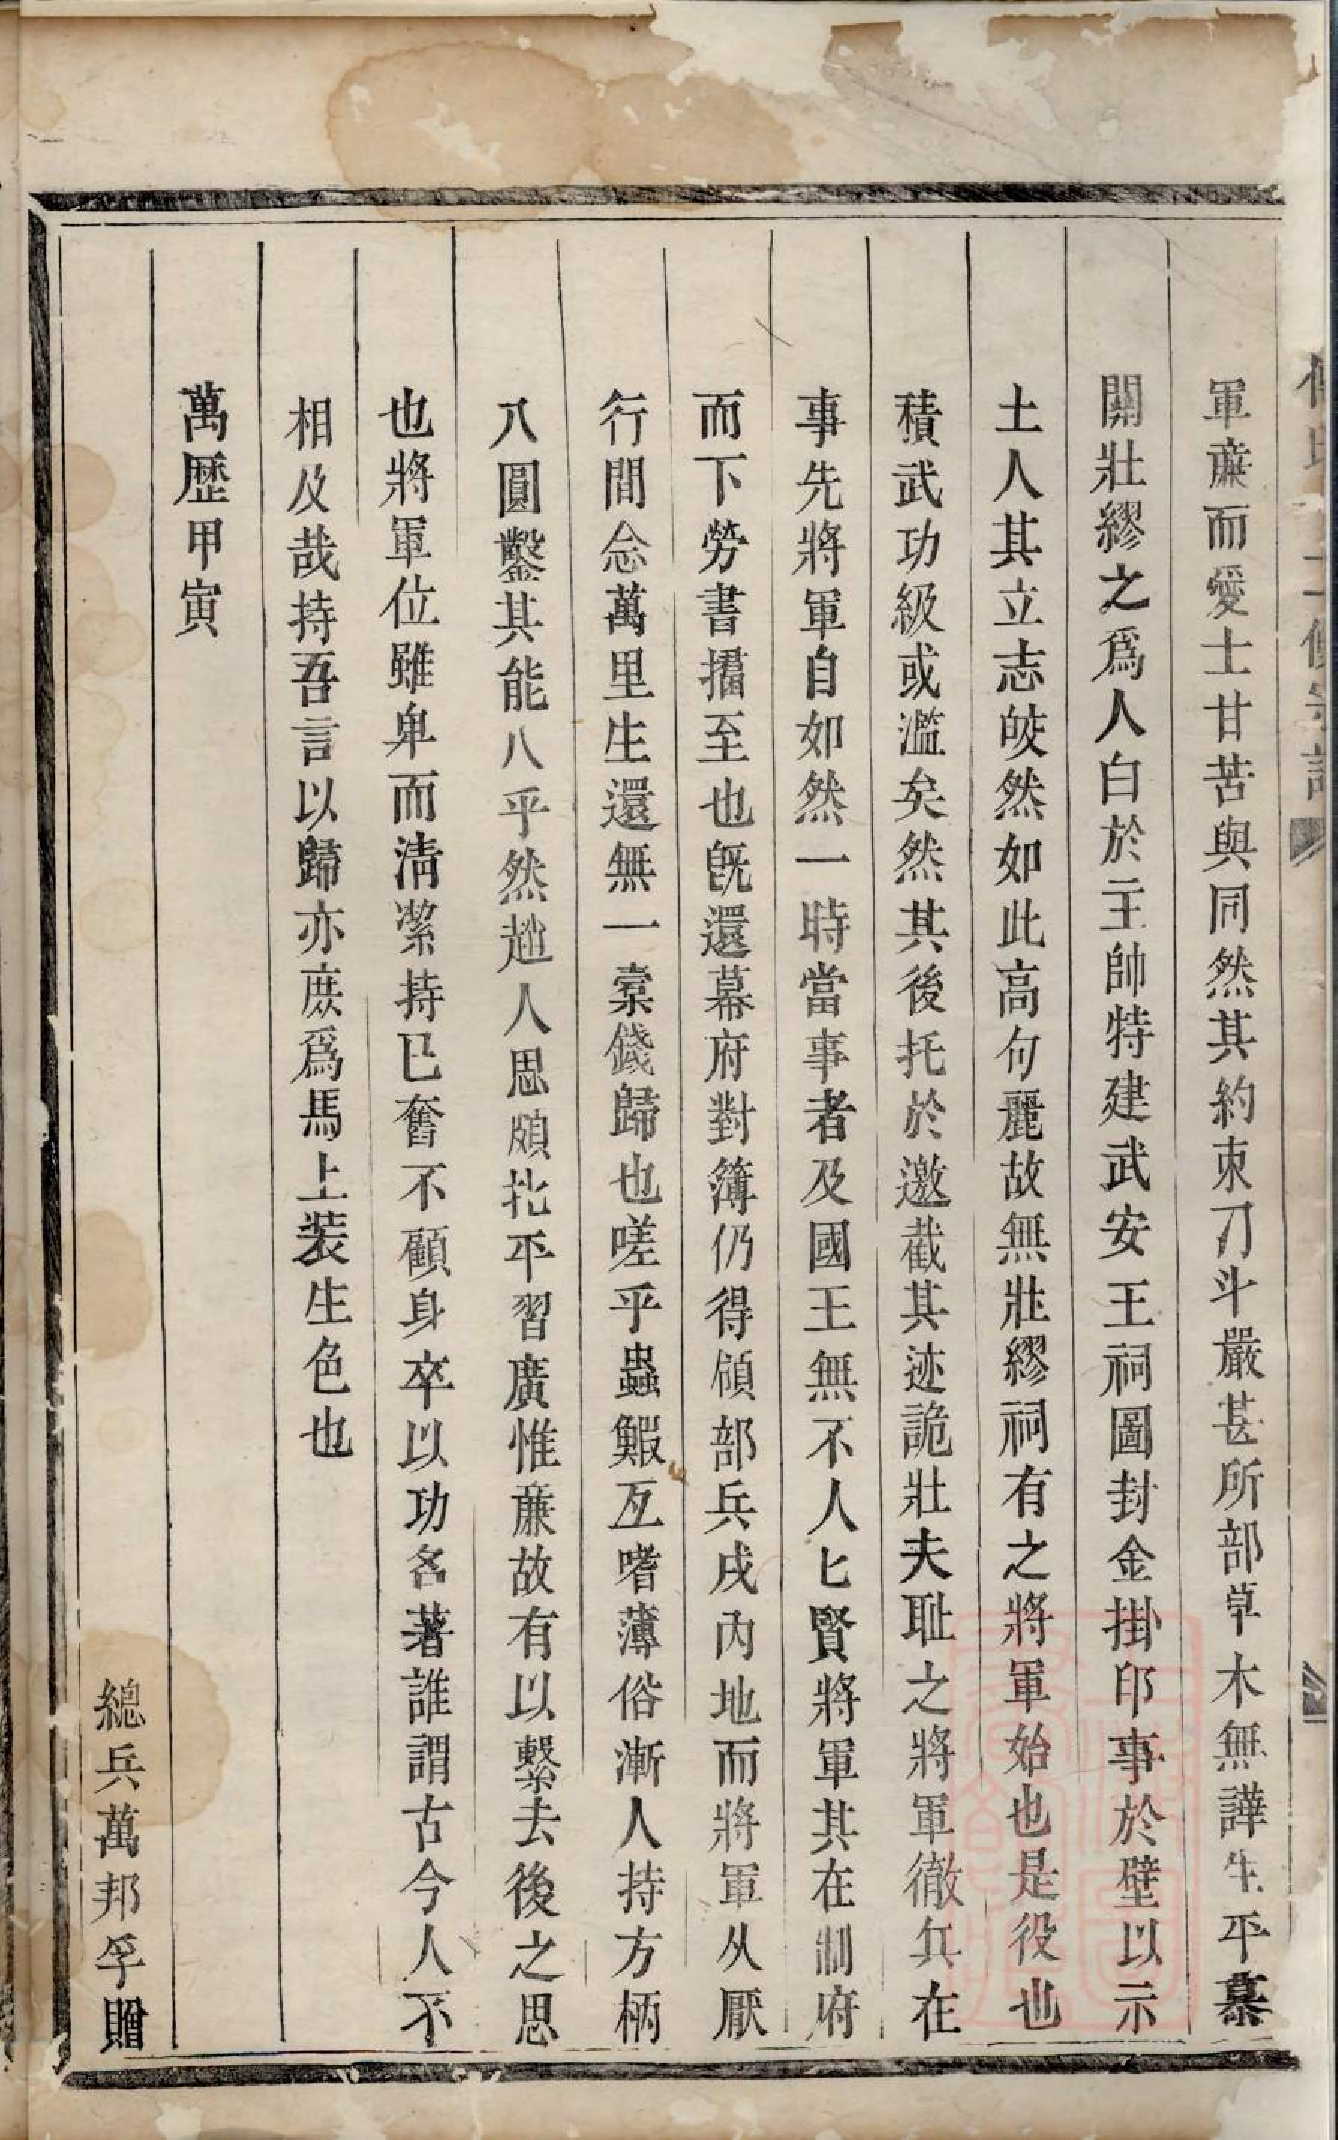 軍亷而愛士甘苦與同然其約束刀斗嚴甚所部草木無譁生平慕
關壯繆之爲人白於主帥特建武安王祠圖封金掛印事於壁以示
土人其立志皎然如此高句麗故無壯繆祠有之將軍始也是役也
積武功級或濫矣然其後托於邀截其迹詭壯夫耻之將軍徹兵在
事先將軍自如然一時當事者及國王無不人匕賢將軍其在制府
而下勞書攟至也旣還幕府對簿仍得領部兵戍內地而將軍从厭
行間念萬里生還無一槖錢歸也嗟乎蟲鰕互嗜薄俗漸人持方柄
八圓鑿其能八乎然趙人思頗批平習廣惟亷故有以繫去後之思
也將軍位雖卑而淸潔持已奮不顧身卒以功名著誰謂古今人不
相及哉持吾言以歸亦庶爲馬上装生色也
萬歷甲寅
總兵萬邦孚贈